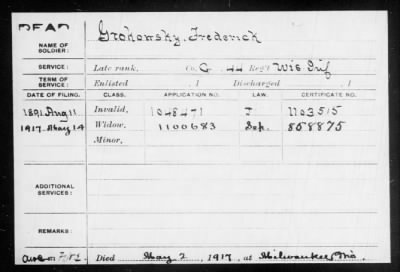 DEAD
NAME OF SOLDIER: Grokowsky, Frederick
SERVICE: Late rank, Co. G, 44 Reg't Wis. Inf
TERM OF SERVICE: Enlisted , 1 Discharged , 1
DATE OF FILING. CLASS. APPLICATION NO. LAW. CERTIFICATE NO.
1891 Aug 11 Invalid, 1048471 J 1103515
1917. May 14 Widow, 1100683 Sep. 858875
Minor,
ADDITIONAL SERVICES:
REMARKS:
Died May 2, 1917, at Milwaukee Wis.